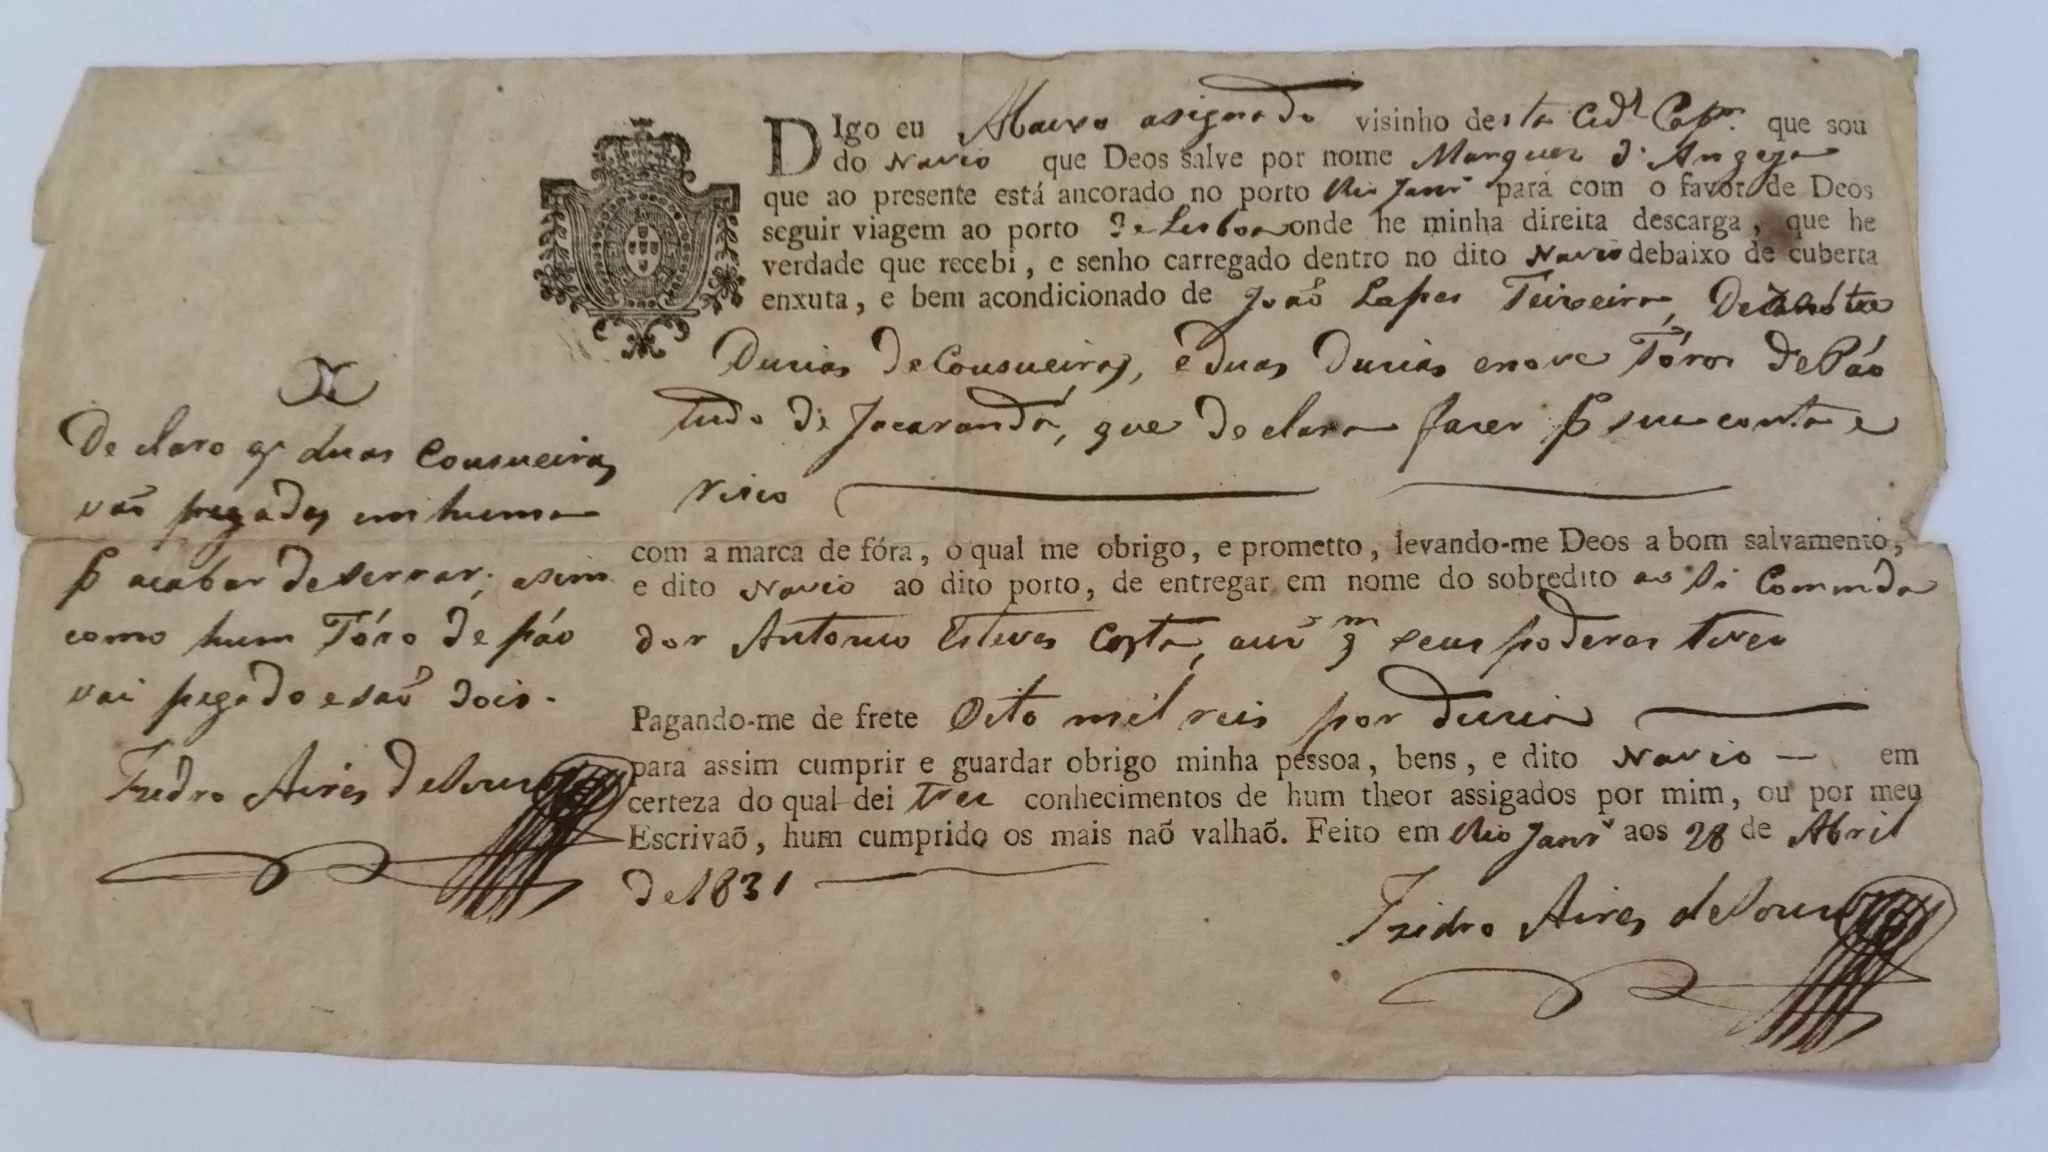 DIgo eu Abaixo asignado visinho desta Cid.e Cap.m que sou
do Navio que Deos salve por nome Marquez d'Angeja
que ao presente está ancorado no porto Rio Janr.o para com o favor de Deos
seguir viagem ao porto de Lisboa onde he minha direita descarga, que he
verdade que recebi, e senho carregado dentro no dito Navio debaixo de cuberta
enxuta, e bem acondicionado de João Lopes Teixeira,
Duzias de Cousueiras, e duas Duzias e nove Tóros de Páo
tudo de Jacarandá, que declara fazer p sua conta e
risco
com a marca de fóra, o qual me obrigo, e prometto, levando-me Deos a bom salvamento,
e dito Navio ao dito porto, de entregar em nome do sobredito ao Commda
dor Antonio Esteves Costa, seus poderes tiver
Pagando-me de frete Oito mil reis por duzia
para assim cumprir e guardar obrigo minha pessoa, bens, e dito Navio em
certeza do qual dei tres conhecimentos de hum theor assigados por mim, ou por meu
Escrivaõ, hum cumprido os mais naõ valhaõ. Feito em Rio Janr.o aos 28 de Abril
de 1831
Izidro Aires de Souza
X
Declaro q duas Cousueiras
vaõ pegadas em huma
p acabar de serrar; asim
como hum Tóro de páo
vai pegado e saõ dois.
Izidro Aires de Souza